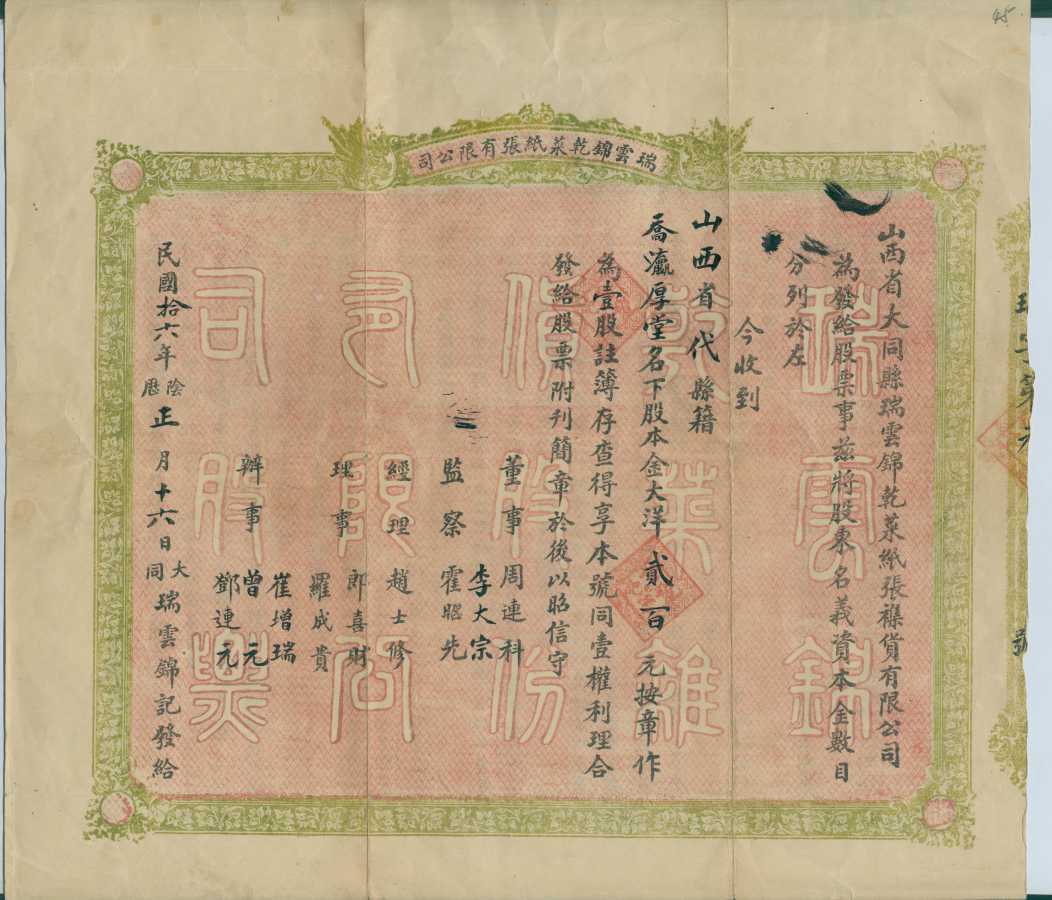 45
瑞雲錦乾菜紙張有限公司
山西省大同縣瑞雲錦乾菜紙張襍貨有限公司
為發給股票事茲將股東名義資本金數目
分列於左
今收到
山西省代縣籍
喬瀛厚堂名下股本金大洋貳百元按章作
為壹股註簿存查得享本號同壹權利理合
發給股票附刊簡章於後以昭信守
董事周連科
李大宗
監察霍昭先
經理趙士修
理事郎喜財
羅成貴
崔增瑞
辦事曾元
鄧連元
民國拾六年陰曆正月十六日大同瑞雲錦記發給
瑞雲錦
乾菜雜
貨股份
有限公
司股票